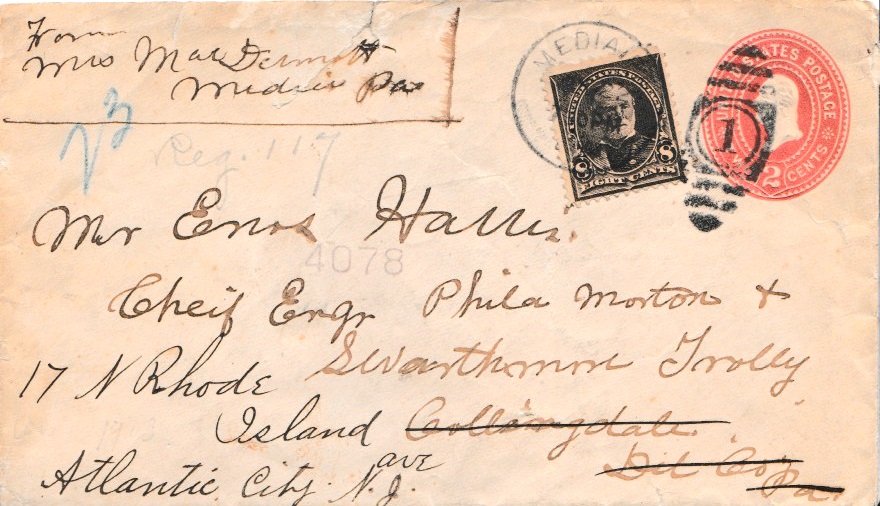 From
Mrs MacDermott
Media Pa
MEDIA
UNITED STATES POSTAGE
2 CENTS
1
8 8
EIGHT CENTS
23
Reg. 117
Mr Enos Harris.
4078
Cheif Engr Phila Morton &
Swarthmore Trolly
17 N Rhode
Island Collingdale
ave
Del Co
Atlantic City N.J.
Pa.